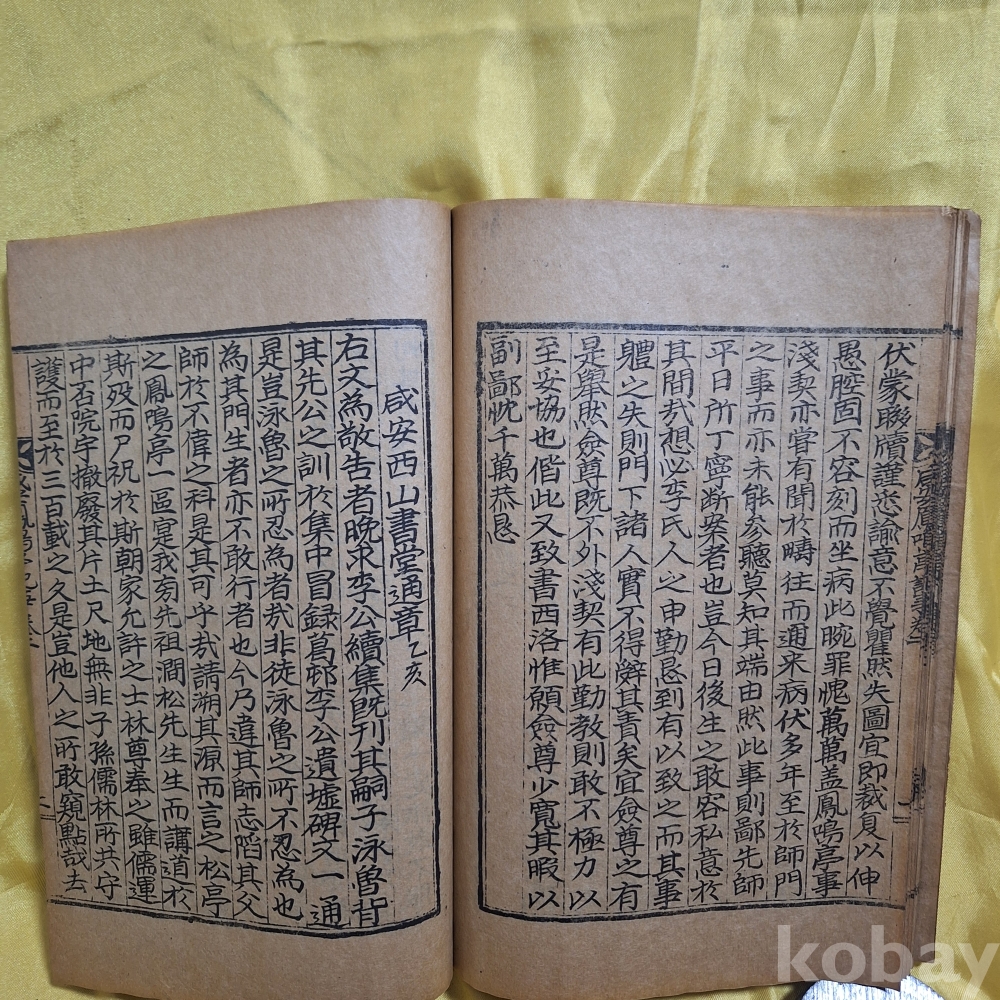 伏蒙聯牘謹悉諭意不覺瞿然失圖宜即裁复以伸
愚腔固不容刻而坐病此晼罪愧萬萬盖鳳鳴亭事
淺契亦甞有聞於疇往而通來病伏多年至於師門
之事而亦未能參聽莫知其端由然此事則鄙先師
平日所丁寧断案者也豈今日後生之敢容私意於
其間㢤想必李氏人之申勤恳到有以致之而其事
軆之失則門下諸人實不得辭其責矣宜僉尊之有
是舉然僉尊旣不外淺契有此勤教則敢不極力以
至妥協也偕此又致書西洛惟願僉尊少寬其暇以
副鄙忱千萬恭恳
咸安西山書堂通章 乙亥
右文為敬告者晚求李公續集旣刊其嗣子泳魯背
其先公之訓於集中冒録葛邨李公遺墟碑文一通
是豈泳魯之所忍為者㢤非徒泳魯之所不忍為也
為其門生者亦不敢行者也今乃違其師志陷其父
師於不韙之科是其可乎㢤請溯其源而言之松亭
之鳳鳴亭一區寔我旁先祖澗松先生生而講道於
斯歿而尸祝於斯朝家允許之士林尊奉之雖儒運
中否院宇撤廢其片土尺地無非子孫儒林所共守
護而至於三百載之久是豈他人之所敢窺點哉去
kobay